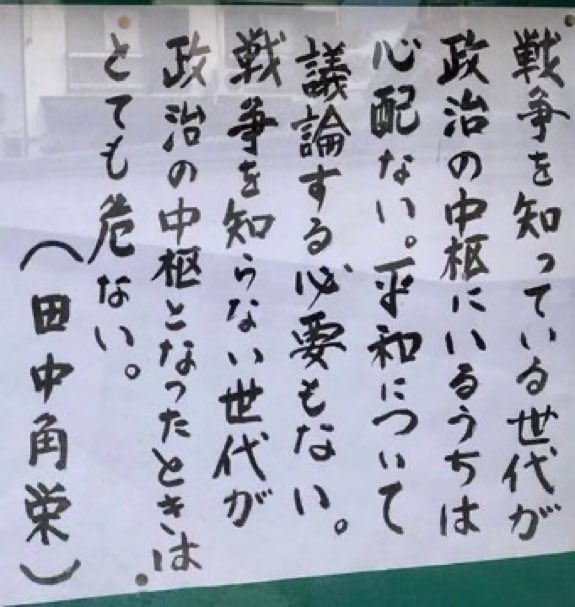 戦争を知っている世代が
政治の中枢にいるうちは
心配ない。平和について
議論する必要もない。
戦争を知らない世代が
政治の中枢となったときは
とても危ない。
（田中角栄）